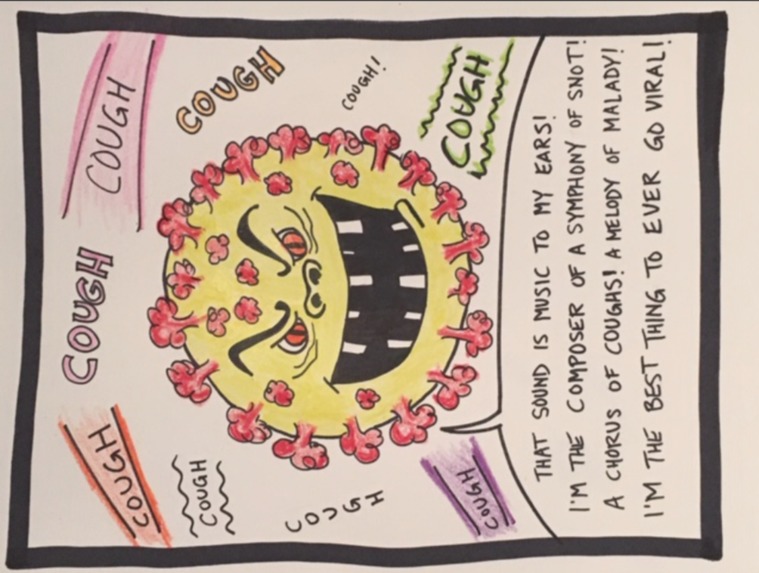 COUGH
COUGH
COUGH
COUGH
COUGH
COUGH
COUGH!
COUGH
COUGH
THAT SOUND IS MUSIC TO MY EARS!
I'M THE COMPOSER OF A SYMPHONY OF SNOT!
A CHORUS OF COUGHS! A MELODY OF MALADY!
I'M THE BEST THING TO EVER GO VIRAL!